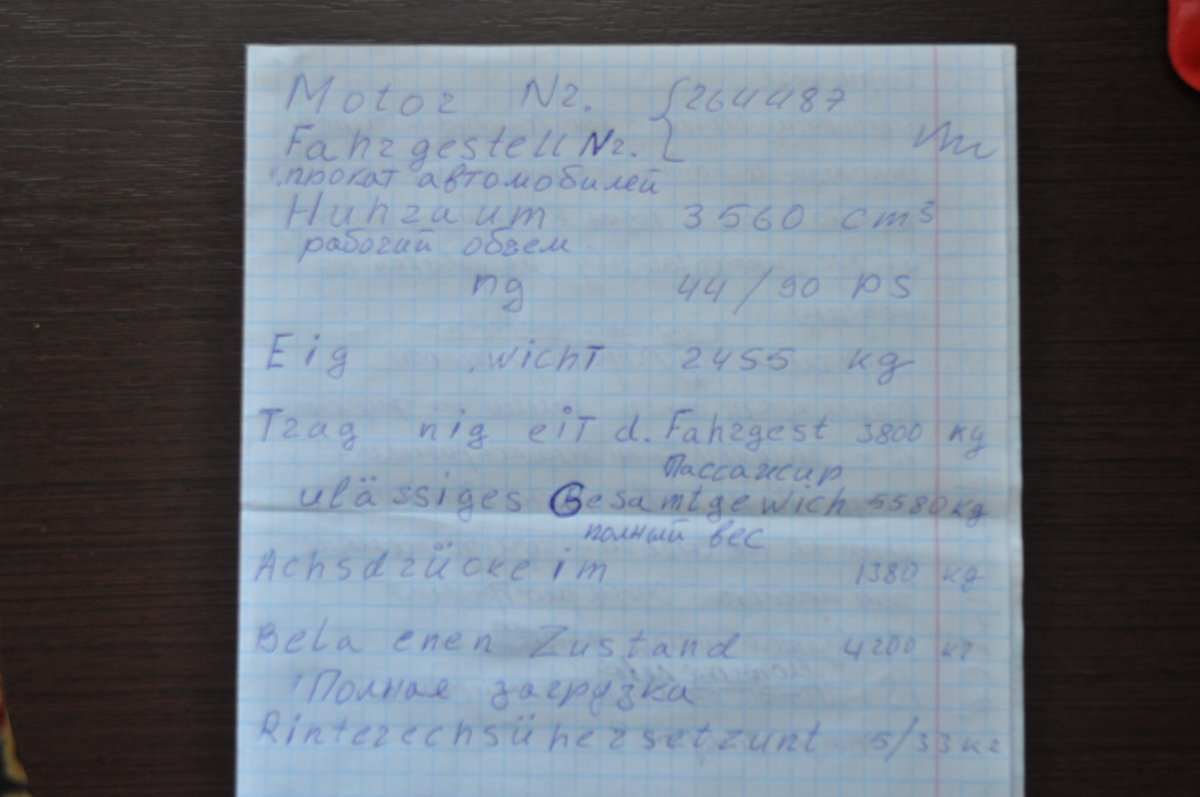 Motor Nr. {264487
Fahrgestell Nr.
прокат автомобилей
Huhraum 3560 cm³
рабочий объем
ng 44/90 PS
Eig wicht 2455 kg
Trag nig eit d. Fahrgest 3800 kg
Пассажир
ulässiges Gesamtgewich 5580 kg
полный вес
Achsdrücke im 1380 kg
Bela enen Zustand 4200 кг
Полная загрузка
Rinterechsühersetzunt 5/33 кг